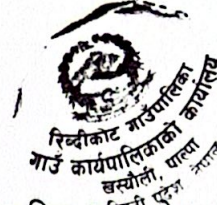 रिब्दीकोट गाउँपालिका
गाउँ कार्यपालिकाको कार्यालय
खस्यौली, पाल्पा
नेपाल